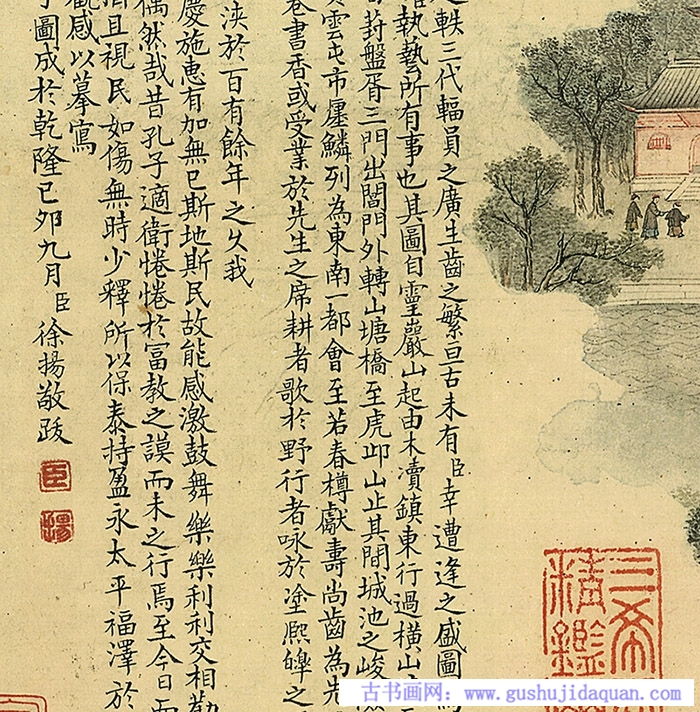 之軼三代輻員之廣生齒之繁亘古未有臣幸遭逢之盛圖
執藝所有事也其圖自靈巖山起由木瀆鎮東行過橫山
葑盤胥三門出閶門外轉山塘橋至虎邱山止其間城池之峻
雲屯市廛鱗列為東南一都會至若春樽獻壽尚齒為先
巷書香或受業於先生之席耕者歌於野行者咏於塗熙皞之
浹於百有餘年之久我
慶施惠有加無已斯地斯民故能感激鼓舞樂樂利利交相勸
偶然哉昔孔子適衛惓惓於富教之謨而未之行焉至今日而
且視民如傷無時少釋所以保泰持盈永太平福澤於
觀感以摹寫
圖成於乾隆己卯九月臣徐揚敬跋
臣
揚
三希
精鑑
古书画网：www.gushujidaquan.com